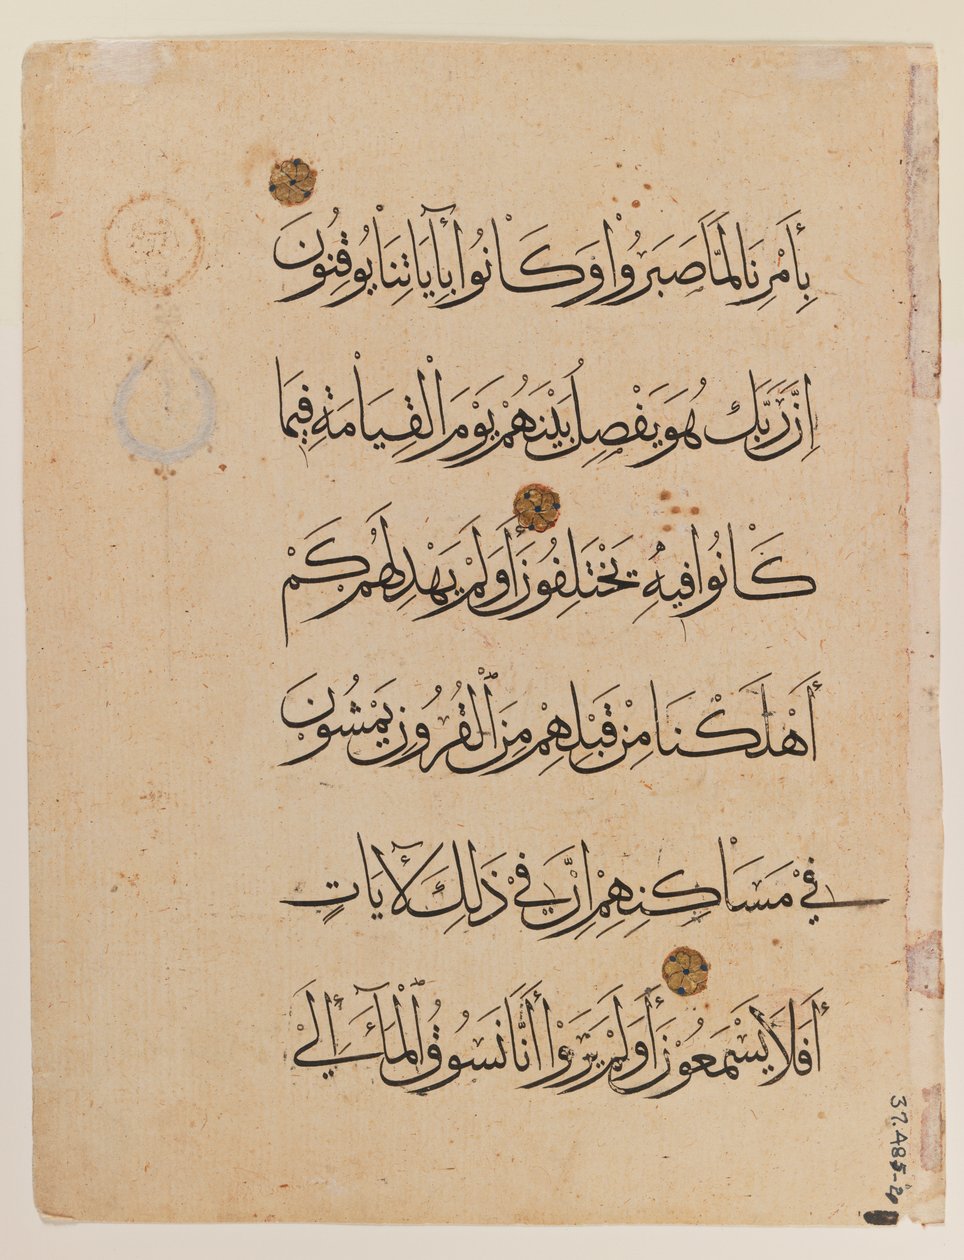 بِأَمْرِنَا لَمَّا صَبَرُوا وَكَانُوا بِآيَاتِنَا يُوقِنُونَ
إِنَّ رَبَّكَ هُوَ يَفْصِلُ بَيْنَهُمْ يَوْمَ الْقِيَامَةِ فِيمَا
كَانُوا فِيهِ يَخْتَلِفُونَ أَوَلَمْ يَهْدِ لَهُمْ كَمْ
أَهْلَكْنَا مِنْ قَبْلِهِمْ مِنَ الْقُرُونِ يَمْشُونَ
فِي مَسَاكِنِهِمْ إِنَّ فِي ذَلِكَ لَآيَاتٍ
أَفَلَا يَسْمَعُونَ أَوَلَمْ يَرَوْا أَنَّا نَسُوقُ الْمَاءَ إِلَى
37.A85-2